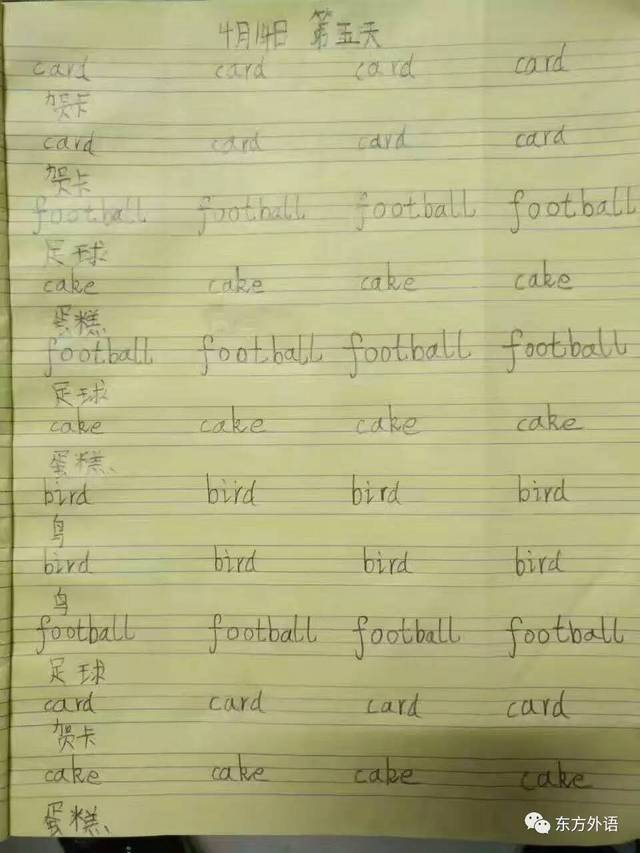 4月14日 第五天
card card card card
贺卡
card card card card
贺卡
football football football football
足球
cake cake cake cake
蛋糕
football football football football
足球
cake cake cake cake
蛋糕
bird bird bird bird
鸟
bird bird bird bird
鸟
football football football football
足球
card card card card
贺卡
cake cake cake cake
蛋糕
东方外语